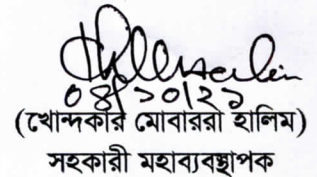 ০৪/১০/২১
(খোন্দকার মোবাররা হালিম)
সহকারী মহাব্যবস্থাপক